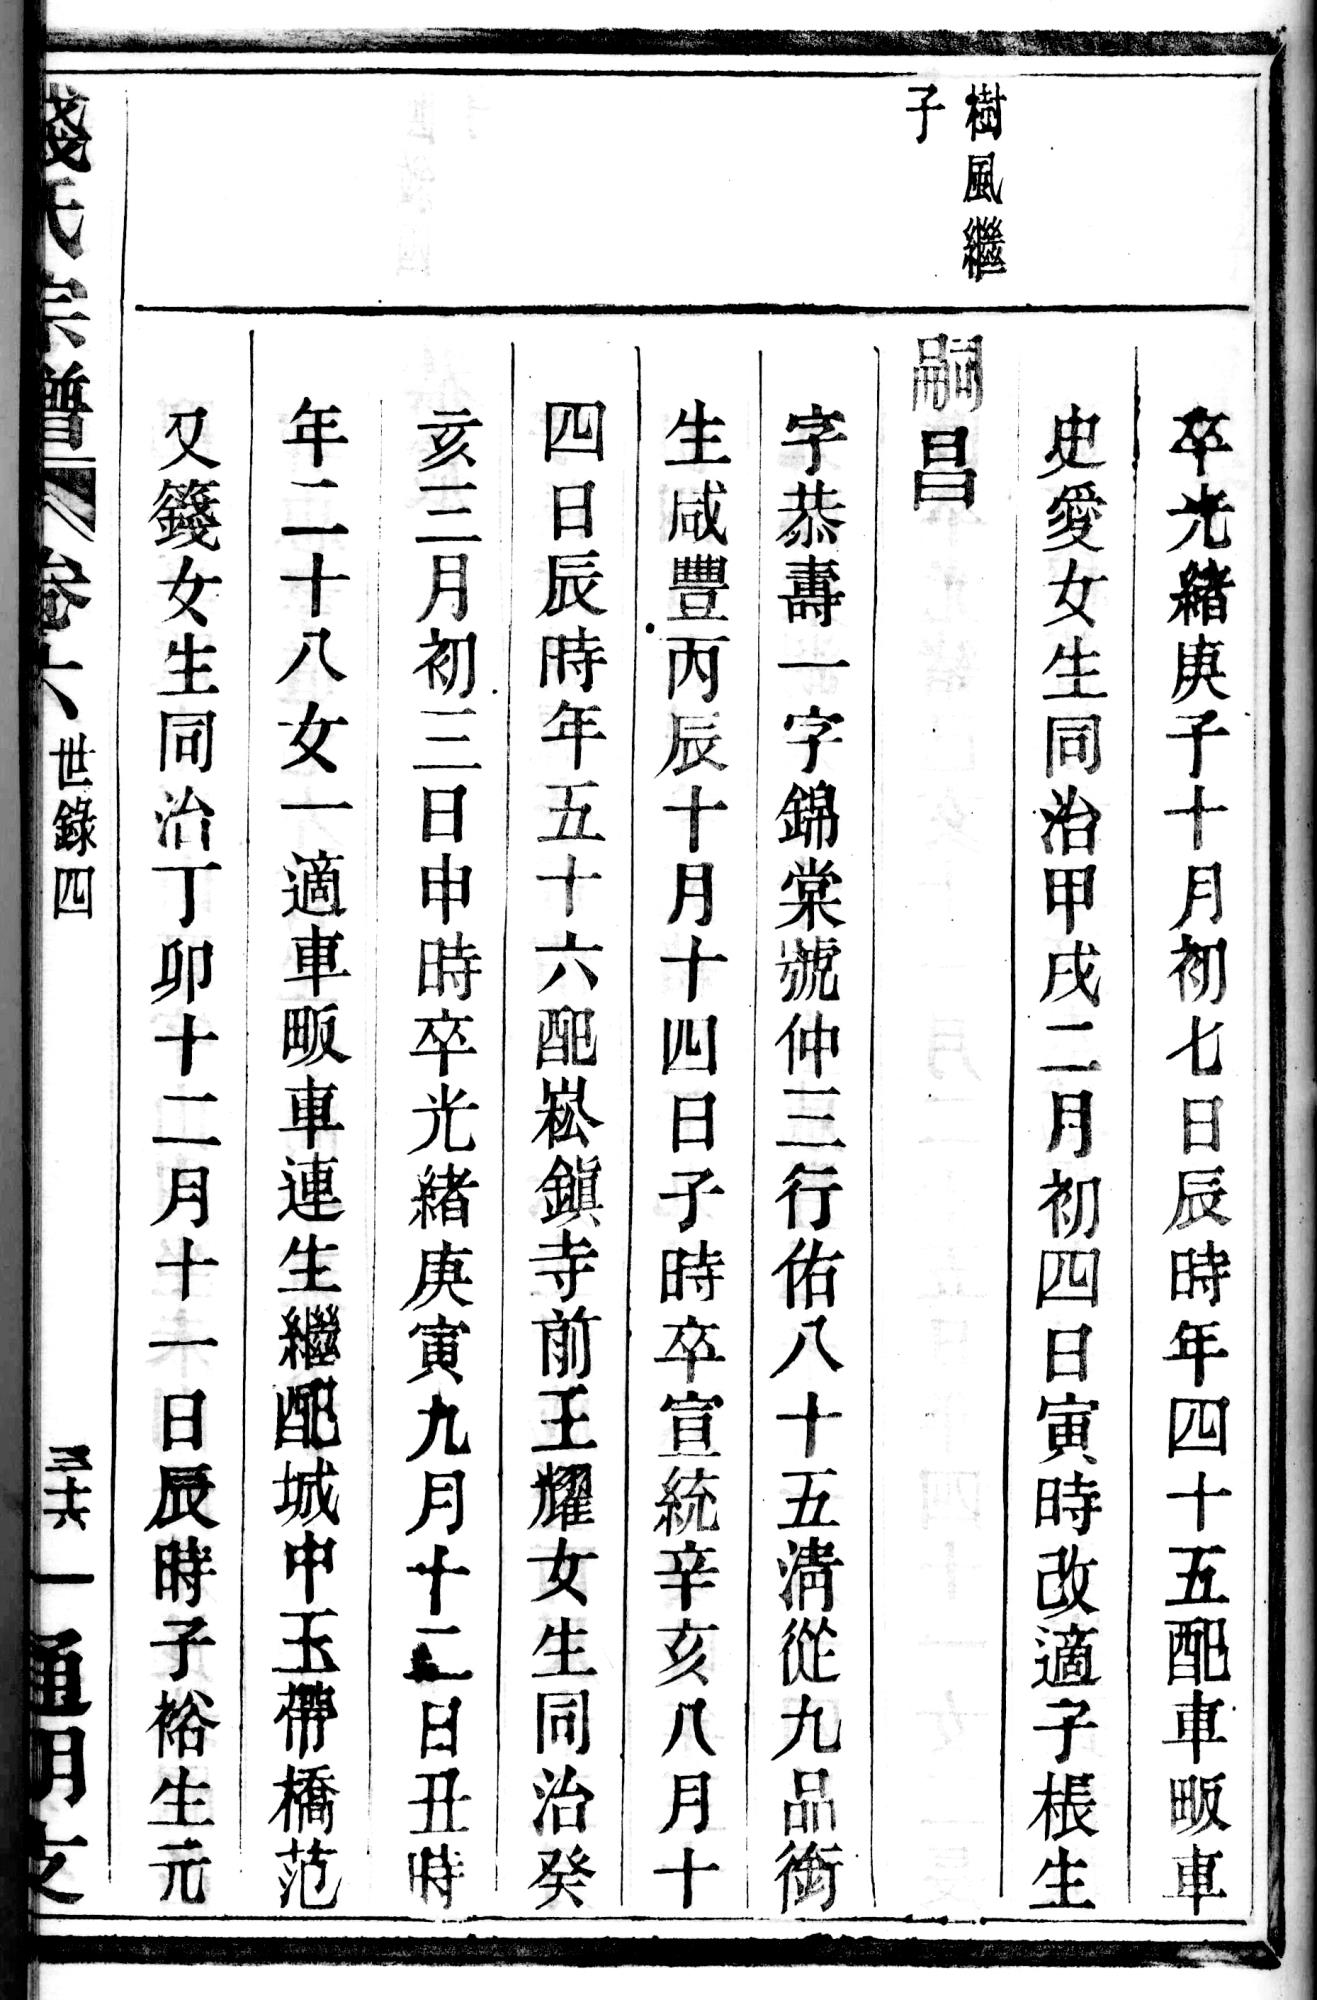 卒光緒庚子十月初七日辰時年四十五配車畈車
史愛女生同治甲戌二月初四日寅時改適子棖生
樹風繼
子
嗣昌
字恭壽一字錦棠號仲三行佑八十五淸從九品銜
生咸豐丙辰十月十四日子時卒宣統辛亥八月十
四日辰時年五十六配崧鎭寺前王耀女生同治癸
亥三月初三日申時卒光緒庚寅九月十二日丑時
年二十八女一適車畈車連生繼配城中玉帶橋范
又籛女生同治丁卯十二月十一日辰時子裕生元
錢氏宗譜 卷六 世錄四 三十六 一 通明支